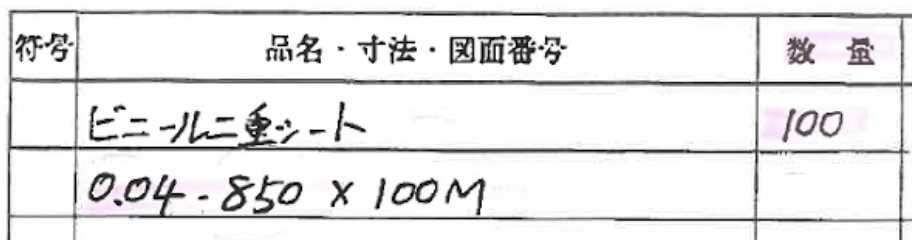 符号 品名・寸法・図面番号 数量
ビニール二重シート 100
0.04-850×100M